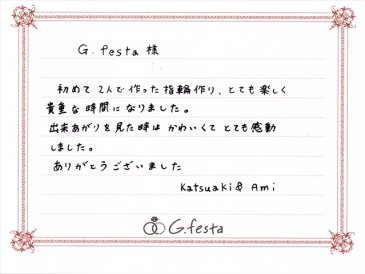 G.festa 様
初めて 2人で作った指輪作り、とても楽しく
貴重な時間になりました。
出来あがりを見た時は かわいくて とても感動
しました。
ありがとうございました
Katsuaki & Ami
G.festa